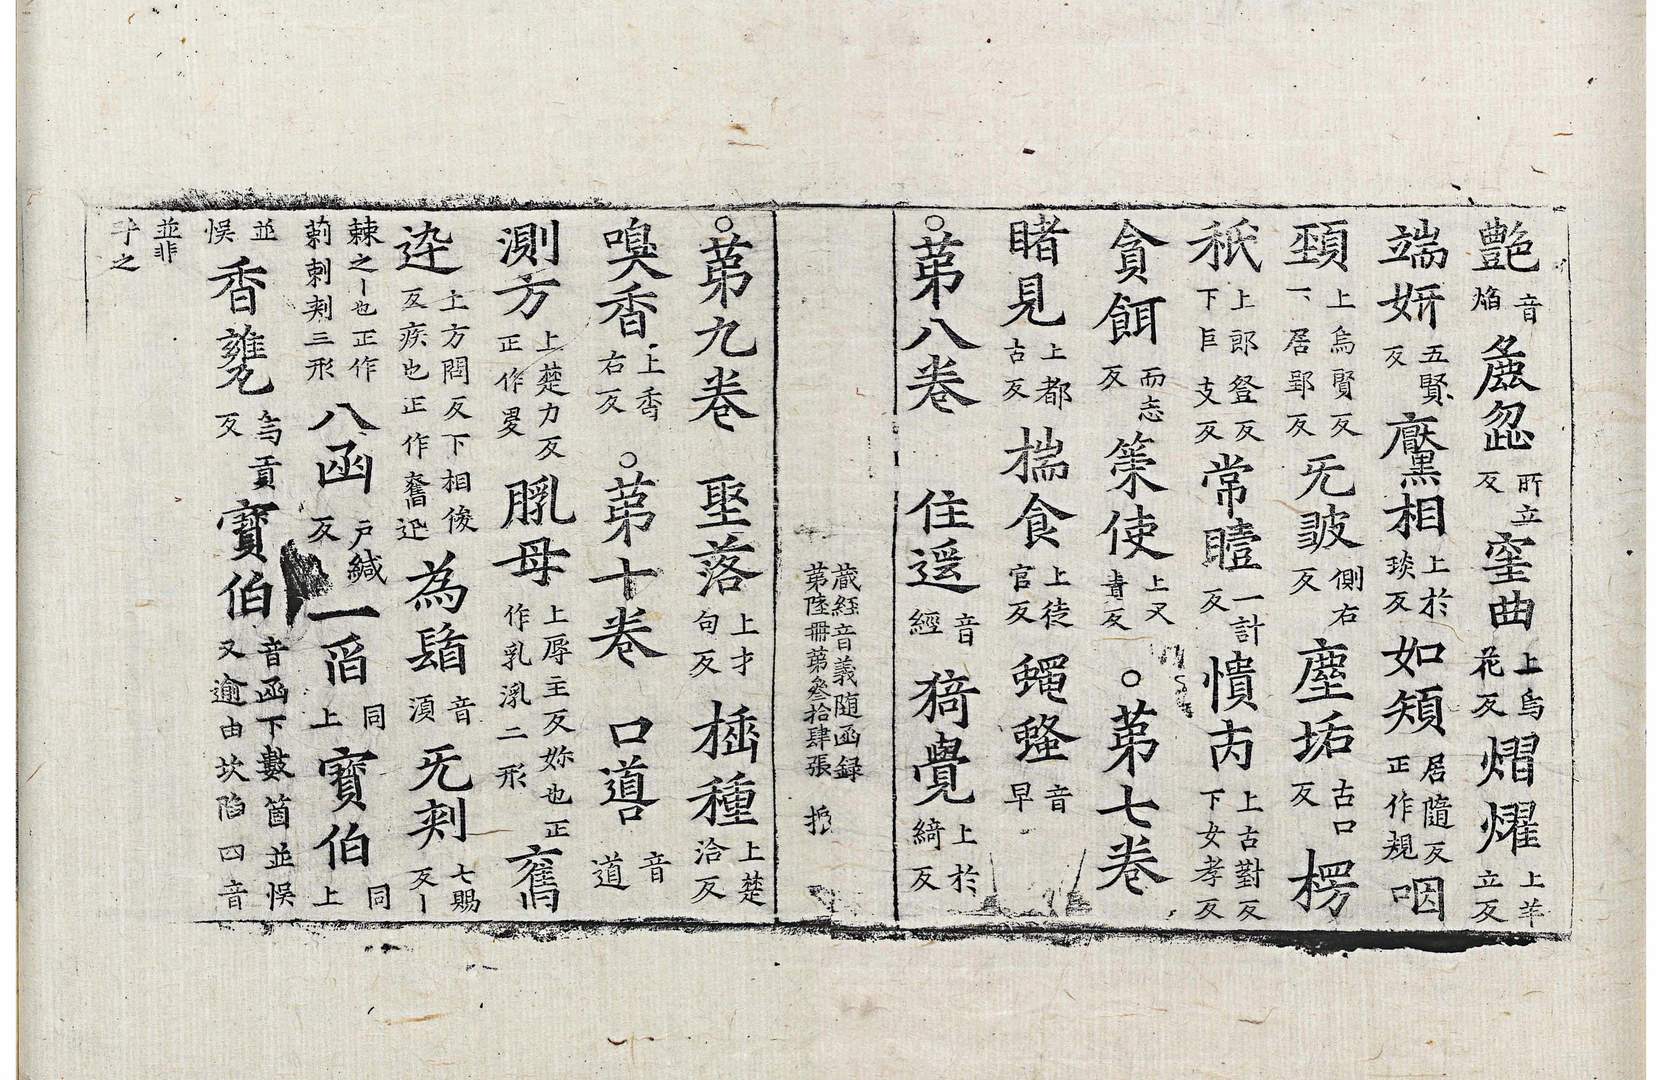 艶音焰麁所立反窐曲上烏花反熠燿上羊立反
端妍五賢反黶相上於琰反如䂓居隨反正作規咽
頸上烏賢反下居郢反旡皱側右反塵垢古口反楞
秖上郎登反下巨支反常曀一計反憒丙上古對反下女孝反
貪餌而志反策使上叉責反○第七卷
睹見上都古反揣食上徒官反蠅蚤音早
○第八卷　住遥音經猗覺上於綺反
蔵経音義随函録
第陸冊第叄拾肆張
○第九卷　聚落上才句反插種上楚洽反
嗅香上香右反○第十卷　口噵音道
測方上楚力反正作畟母上辱主反妳也正作乳二形奮
迅上方問反下相俊反疾也正作奮迅為鬚音須旡刾七賜反丨
棘之丨也正作莿刺刾三形八函戶緘反一同上寶伯同上
並悮香甕烏貢反寶伯音函下數箇並悮又逾由坎陷四音
並非乎之